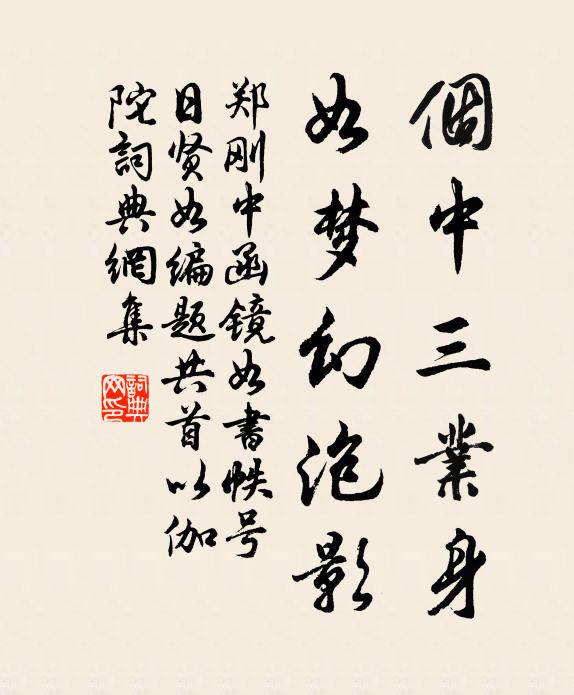 個中三業身
如梦幻泡影
郑刚中函镜如書帙号
日贤如编题共首以伽
陀詞典網集
詞典网印